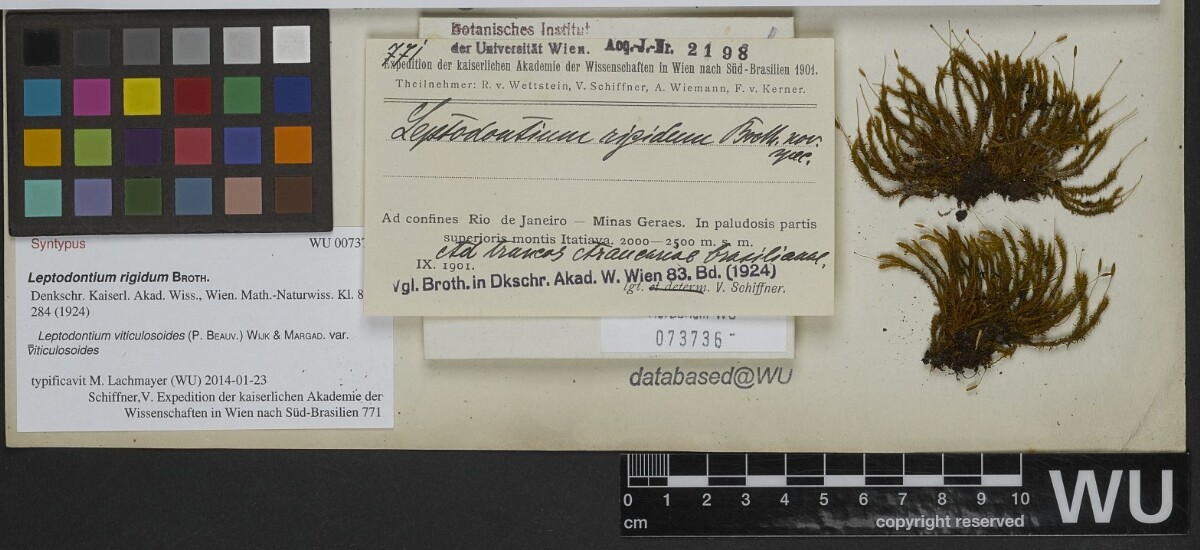 Botanisches Institut
der Universität Wien. Acq.-J.-Nr. 2198
771
Expedition der kaiserlichen Akademie der Wissenschaften in Wien nach Süd-Brasilien 1901.
Theilnehmer: R. v. Wettstein, V. Schiffner, A. Wiemann, F. v. Kerner.
Leptodontium rigidum Broth. nov.
spec.
Ad confines Rio de Janeiro — Minas Geraes. In paludosis partis
superioris montis Itatiaya, 2000—2500 m. s. m.
Ad truncos Araucariae brasilianae.
IX. 1901.
Vgl. Broth. in Dkschr. Akad. W. Wien 83. Bd. (1924)
lgt. et determ. V. Schiffner.
073736
databased@WU
Syntypus WU 00737
Leptodontium rigidum BROTH.
Denkschr. Kaiserl. Akad. Wiss., Wien. Math.-Naturwiss. Kl. 8
284 (1924)
Leptodontium viticulosoides (P. BEAUV.) WIJK & MARGAD. var.
viticulosoides
typificavit M. Lachmayer (WU) 2014-01-23
Schiffner,V. Expedition der kaiserlichen Akademie der
Wissenschaften in Wien nach Süd-Brasilien 771
0 1 2 3 4 5 6 7 8 9 10
cm copyright reserved
WU